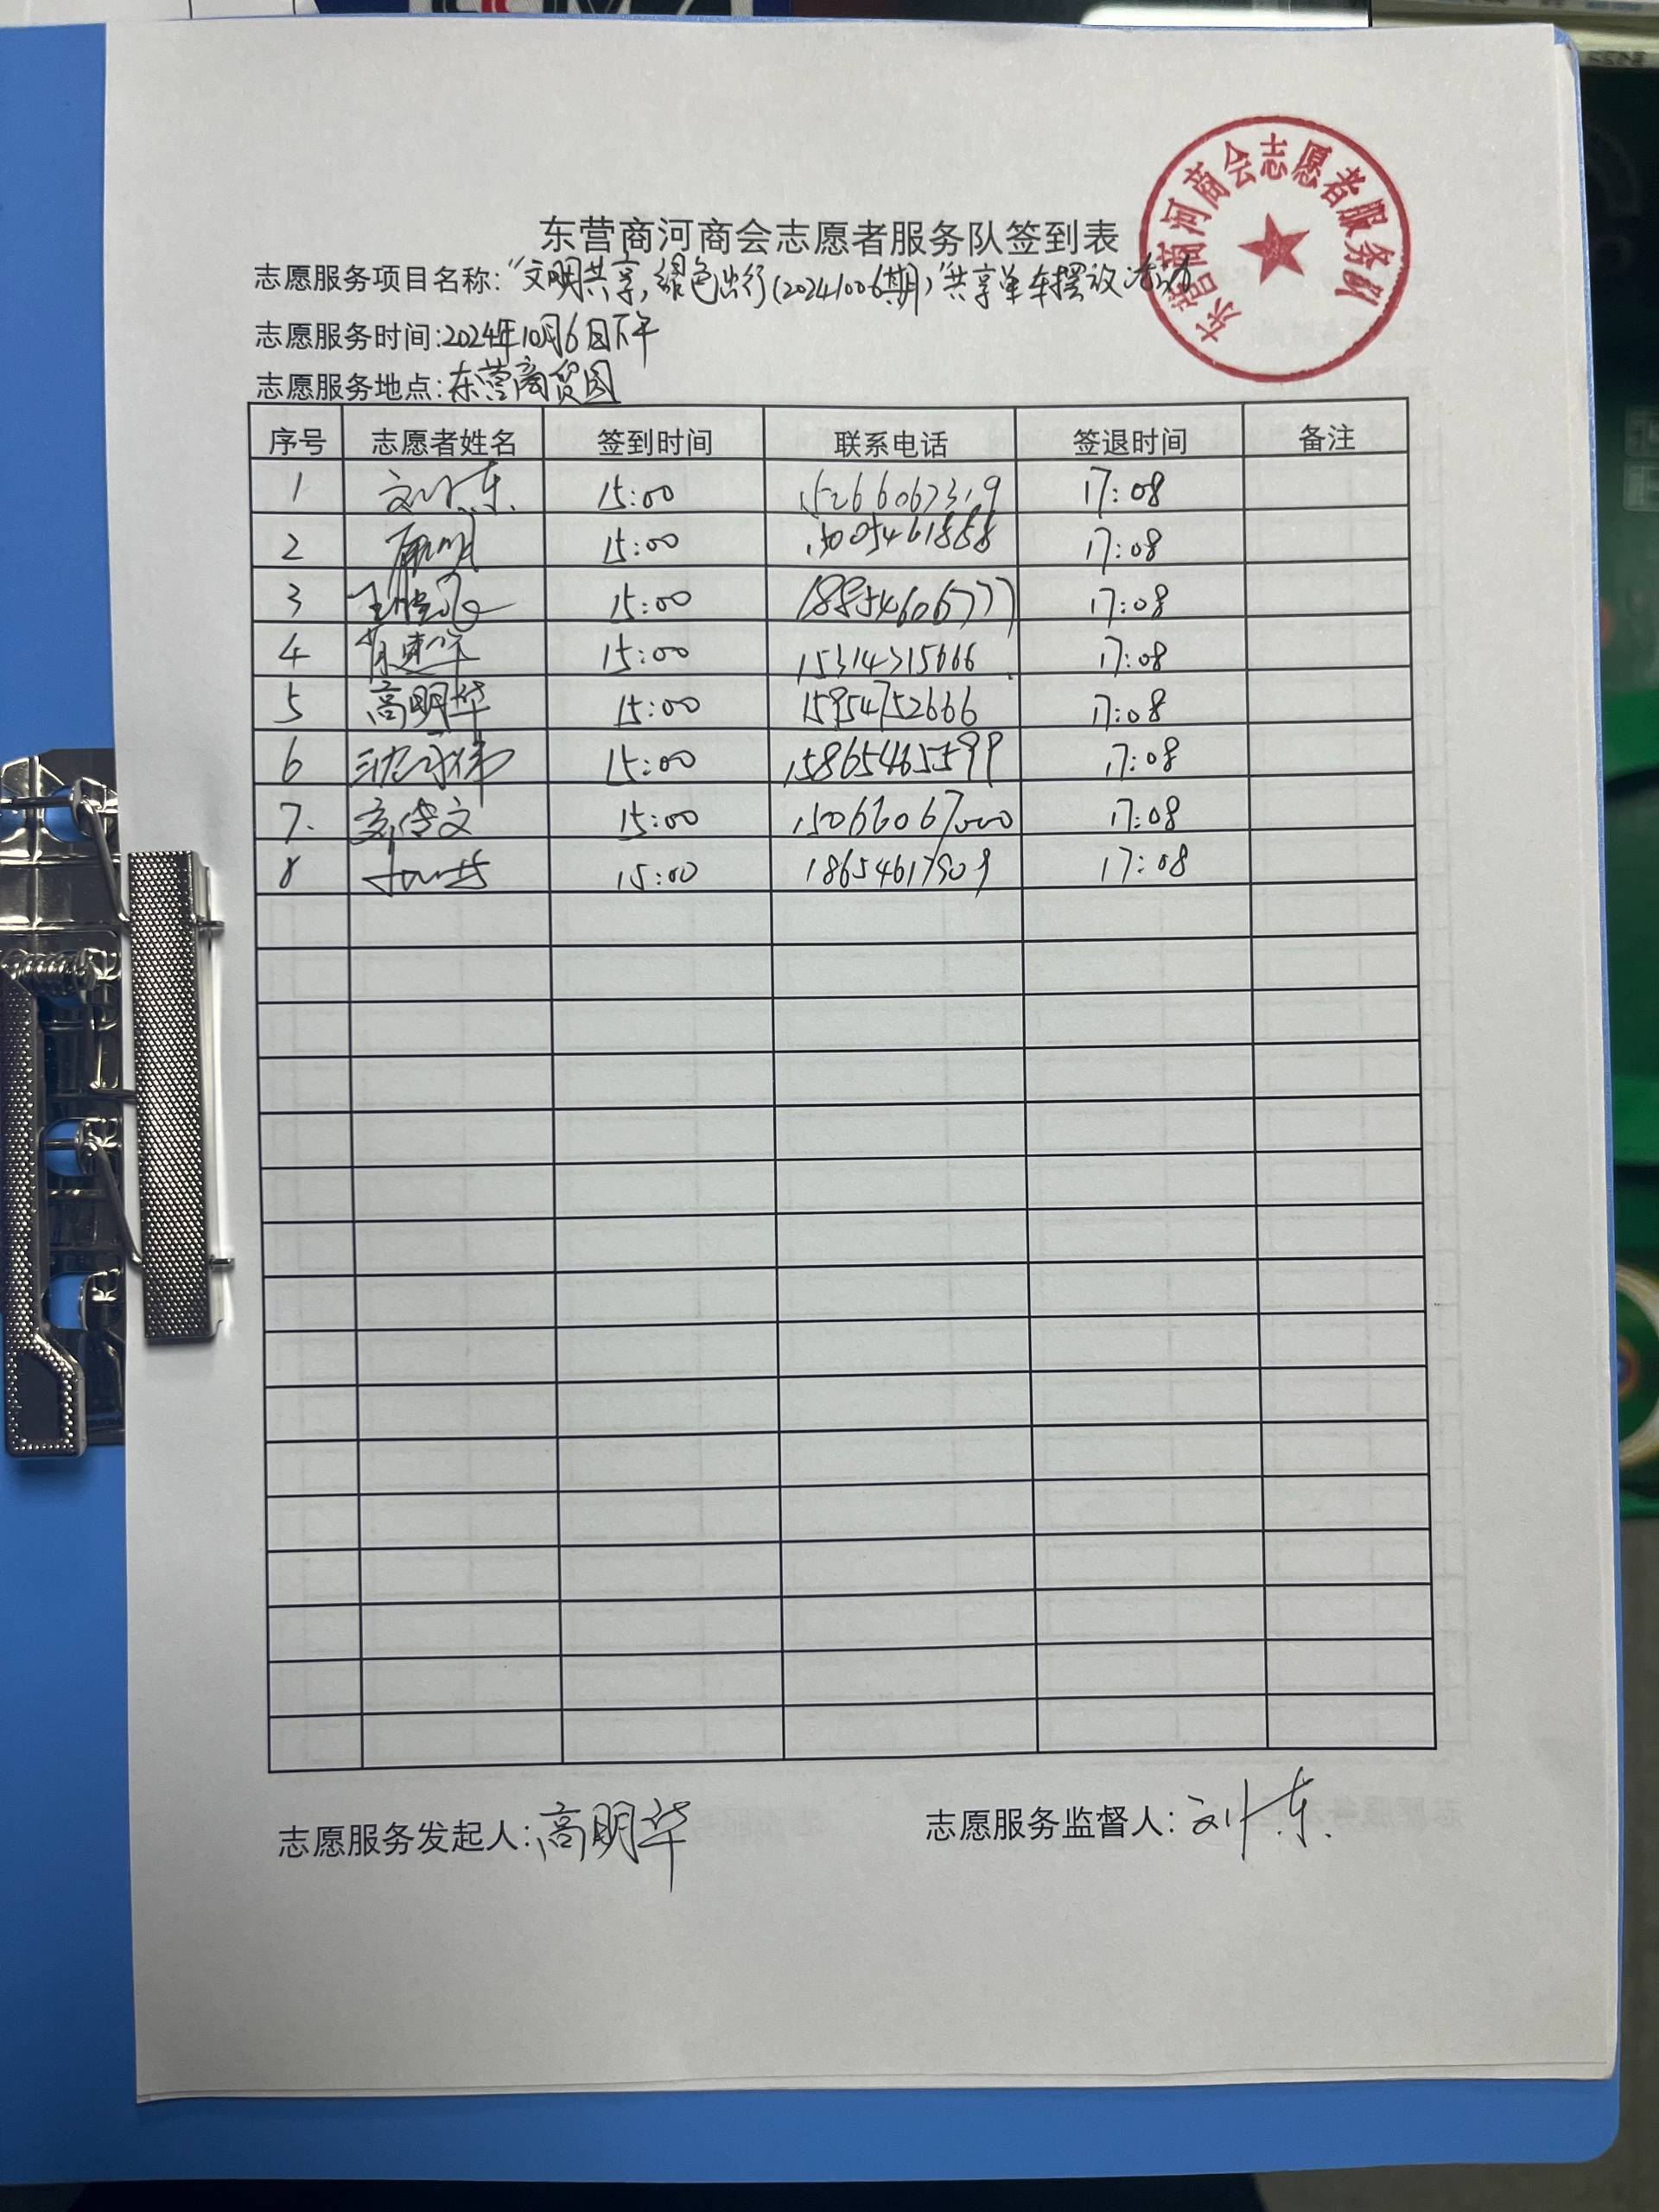 东营商河商会志愿者服务队
东营商河商会志愿者服务队签到表
志愿服务项目名称:“文明共享,绿色出行(20241006期)”共享单车摆放活动
志愿服务时间:2024年10月6日下午
志愿服务地点:东营商贸园
序号 志愿者姓名 签到时间 联系电话 签退时间 备注
1 刘小东 15:00 15266067319 17:08
2 15:00 15005461888 17:08
3 15:00 18854606777 17:08
4 15:00 15314315666 17:08
5 高明华 15:00 15954752666 17:08
6 15:00 15865465599 17:08
7. 15:00 15066067000 17:08
8 15:00 18654617909 17:08
志愿服务发起人:高明华 志愿服务监督人:刘小东